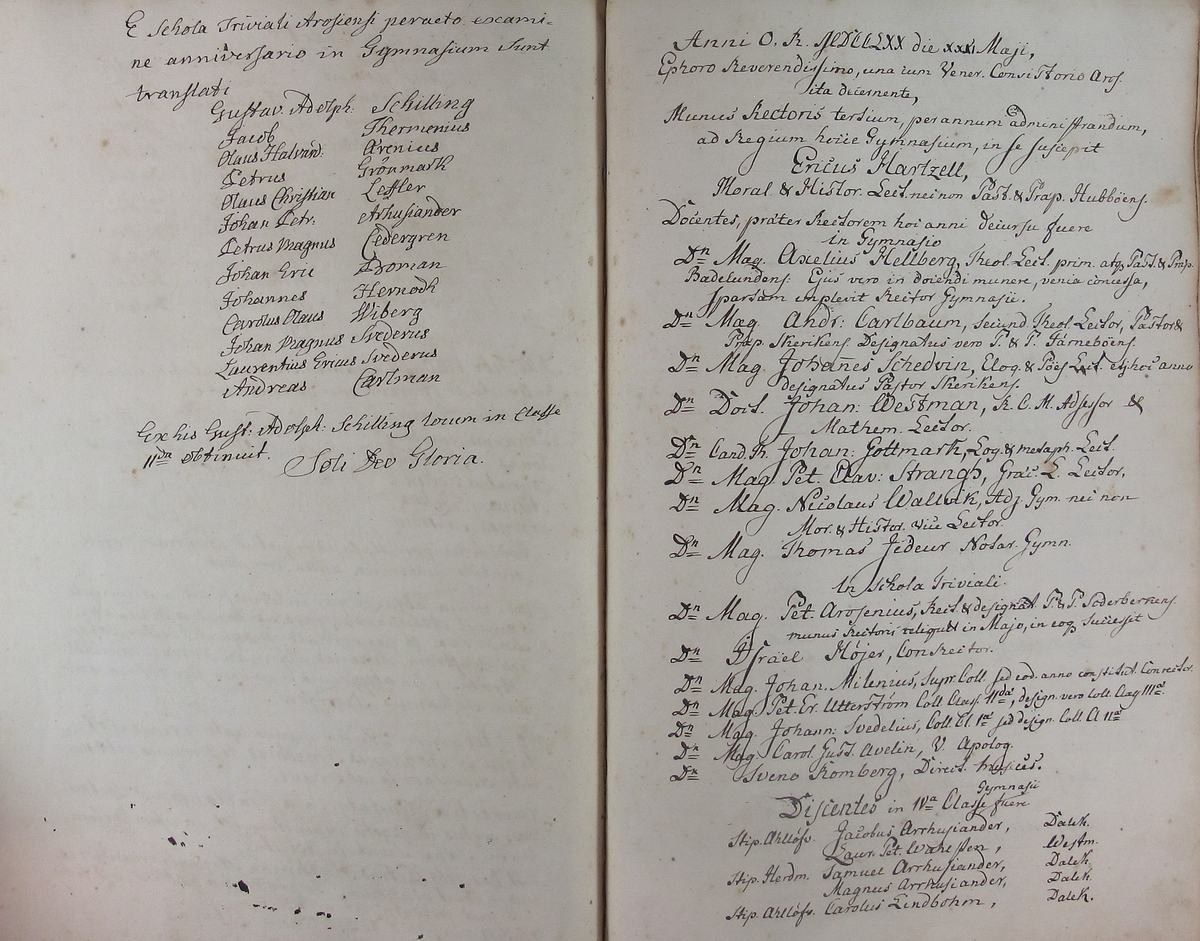 E Schola Triviali Arosiensi peracto exami-
ne anniversario in Gymnasium sunt
translati
Gustav. Adolph. Schilling
Jacob Thermenius
Olaus Halvard: Arenius
Petrus Grönmark
Olaus Christian Leffler
Johan Petr. Arhusiander
Petrus Magnus Cedergren
Johan Eric Broman
Johannes Hernodh
Carolus Olaus Wiberg
Johan Magnus Svederus
Laurentius Ericus Svederus
Andreas Carlman
Ex his Gust: Adolph: Schilling locum in Classe
IIda obtinuit.
Soli Deo Gloria.
Anni O. R. MDCCLXX die Maji,
Ephoro Reverendissimo, una cum Vener. Consistorio Aros.
ita decernente,
Munus Rectoris tertium, per annum administrandum,
ad Regium hocce Gymnasium, in se suscepit
Ericus Hartzell,
Moral & Histor. Lect. nec non Past. & Præp. Hubboëns.
Docentes, præter Rectorem hoc anni decursu fuere
in Gymnasio
Dn Mag. Axelius Hellberg, Theol. Lect. prim. atq Past. & Præp.
Badelundens. Ejus vero in docendi munere, venia concessa,
sparsam explevit Rector Gymnasii.
Dn Mag. Andr: Carlbaum, secund Theol Lector, Pastor &
Præp. Skerikens. Designatus vero P. & P. Jarneboëns.
Dn Mag. Johañes Schedvin, Eloq. & Poës Lect. et hoc anno
designatus Pastor Skerikens.
Dn Doct. Johan: Westman, R. C. M. Adsessor &
Mathem. Lector.
Dn Cand. Th. Johan: Gottmark, Log. & metaph. Lect.
Dn Mag. Pet. Olav: Strangh, Græc. L. Lector,
Dn Mag. Nicolaus Wallvik, Adj Gym. nec non
Mor. & Histor. Vice Lector.
Dn Mag. Thomas Jedeur Notar. Gymn.
In Schola Triviali.
Dn Mag. Pet. Arosenius, Rect. & designat. P. & P. Söderberkens.
munus Rectoris reliquit in Majo, in eoq successit
Dn Israel Höjer, ConRector.
Dn Mag. Johan. Milenius, Supr. Coll. sed eod. anno constitut. Conrector.
Dn Mag. Pet. Er. Utterström Coll Class. IIdæ, design. vero Coll Class IIIæ.
Dn Mag. Johann: Svedelius, Coll. Cl Iæ sed design. Coll Cl IIæ
Dn Mag. Carol. Gust. Avelin, V. Apolog.
Dn Sveno Romberg, Direct. musices.
Discentes in IVa Classe Gymnasii fuere
Stip. Ahllöfv. Jacobus Arrhusiander, Dalek.
Laur. Pet. Wahesten, Westm.
Stip. Herdm. Samuel Arrhusiander, Dalek.
Magnus Arrhusiander, Dalek.
Stip. Ahllöfv. Carolus Lindbohm, Dalek.